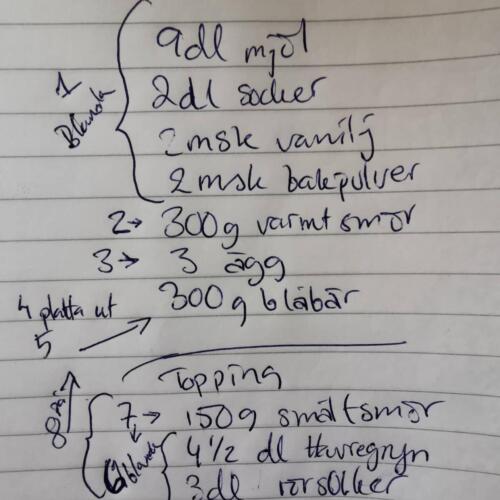 1 Blanda
9dl mjöl
2dl socker
2msk vanilj
2msk bakpulver
2→ 300g varmt smör
3→ 3 ägg
4 platta ut
5 → 300g blåbär
Topping
7→ 150g smält smör
6 blanda
4 1/2 dl Havregryn
3dl rörsocker
8